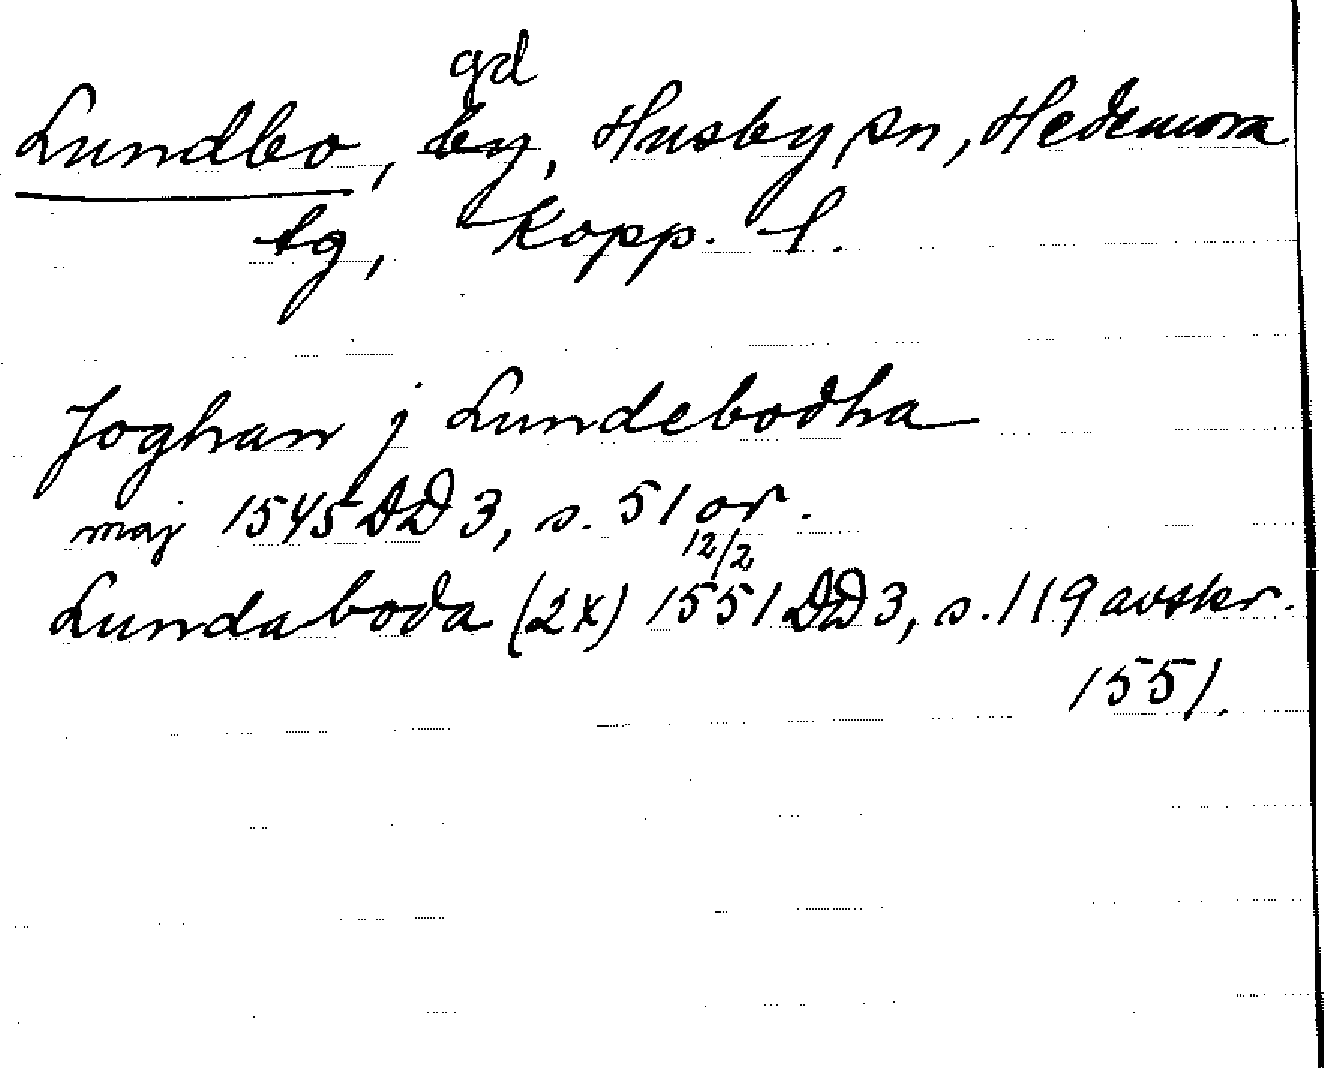 gd
Lundbo, by, Husby sn, Hedemora
tg, Kopp. l.
Joghan j Lundebodha
maj 1545 DD 3, s. 51 or.
12/2
Lundaboda (2x) 1551 DD 3, s. 119 avskr.
1551.